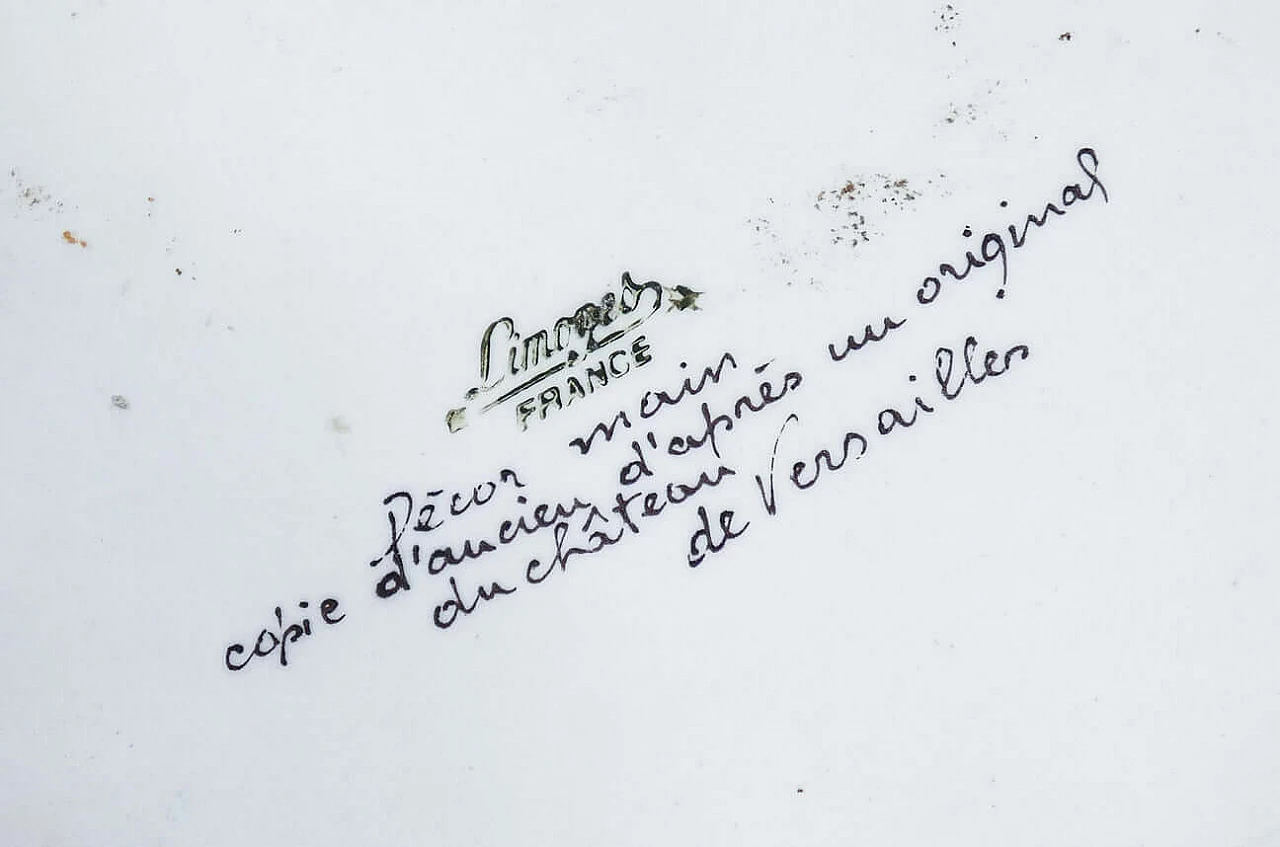 Limoges
FRANCE
Décor main
copie d'ancien d'après un original
du château de Versailles